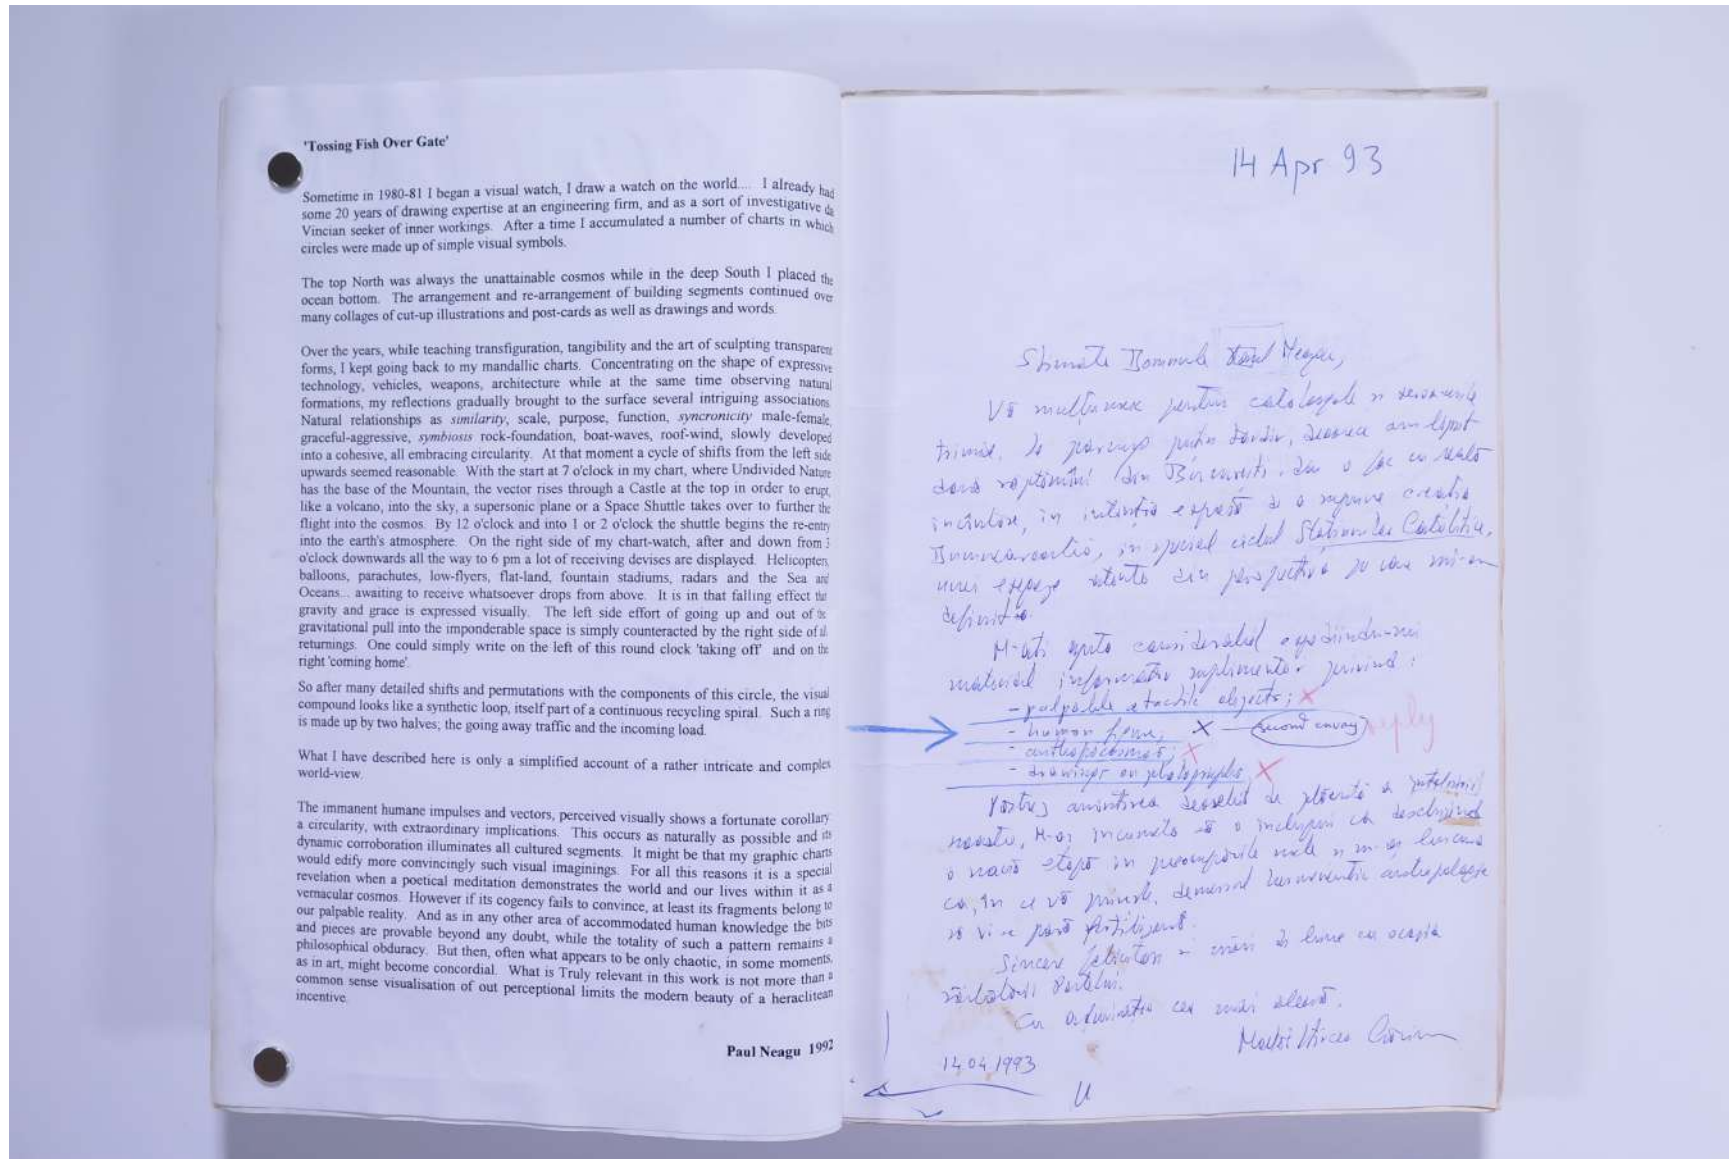 'Tossing Fish Over Gate'
Sometime in 1980-81 I began a visual watch, I draw a watch on the world.... I already had
some 20 years of drawing expertise at an engineering firm, and as a sort of investigative da
Vincian seeker of inner workings. After a time I accumulated a number of charts in which
circles were made up of simple visual symbols.
The top North was always the unattainable cosmos while in the deep South I placed the
ocean bottom. The arrangement and re-arrangement of building segments continued over
many collages of cut-up illustrations and post-cards as well as drawings and words.
Over the years, while teaching transfiguration, tangibility and the art of sculpting transparent
forms, I kept going back to my mandallic charts. Concentrating on the shape of expressive
technology, vehicles, weapons, architecture while at the same time observing natural
formations, my reflections gradually brought to the surface several intriguing associations.
Natural relationships as similarity, scale, purpose, function, syncronicity male-female,
graceful-aggressive, symbiosis rock-foundation, boat-waves, roof-wind, slowly developed
into a cohesive, all embracing circularity. At that moment a cycle of shifts from the left side
upwards seemed reasonable. With the start at 7 o'clock in my chart, where Undivided Nature
has the base of the Mountain, the vector rises through a Castle at the top in order to erupt,
like a volcano, into the sky, a supersonic plane or a Space Shuttle takes over to further the
flight into the cosmos. By 12 o'clock and into 1 or 2 o'clock the shuttle begins the re-entry
into the earth's atmosphere. On the right side of my chart-watch, after and down from 3
o'clock downwards all the way to 6 pm a lot of receiving devises are displayed. Helicopters,
balloons, parachutes, low-flyers, flat-land, fountain stadiums, radars and the Sea and
Oceans... awaiting to receive whatsoever drops from above. It is in that falling effect that
gravity and grace is expressed visually. The left side effort of going up and out of the
gravitational pull into the imponderable space is simply counteracted by the right side of all
returnings. One could simply write on the left of this round clock 'taking off' and on the
right 'coming home'.
So after many detailed shifts and permutations with the components of this circle, the visual
compound looks like a synthetic loop, itself part of a continuous recycling spiral. Such a ring
is made up by two halves; the going away traffic and the incoming load.
What I have described here is only a simplified account of a rather intricate and complex
world-view.
The immanent humane impulses and vectors, perceived visually shows a fortunate corollary
a circularity, with extraordinary implications. This occurs as naturally as possible and its
dynamic corroboration illuminates all cultured segments. It might be that my graphic charts
would edify more convincingly such visual imaginings. For all this reasons it is a special
revelation when a poetical meditation demonstrates the world and our lives within it as a
vernacular cosmos. However if its cogency fails to convince, at least its fragments belong to
our palpable reality. And as in any other area of accommodated human knowledge the bits
and pieces are provable beyond any doubt, while the totality of such a pattern remains a
philosophical obduracy. But then, often what appears to be only chaotic, in some moments,
as in art, might become concordial. What is Truly relevant in this work is not more than a
common sense visualisation of out perceptional limits the modern beauty of a heraclitean
incentive.
Paul Neagu 1992
14 Apr 93
Stimate Domnule Neagu,
Vă mulțumesc pentru cataloagele
trimise. deoarece am lipsit
două săptămâni din București.
încântare, în intenția
în special ciclul Stațiunilor Catalitice,
din perspectivă
definit
M-ați ajuta considerabil expediindu-mi
material informativ suplimentar privind:
- palpable tactile objects;
- human figure, second envoy reply
- anthropocosmos;
- drawings on photographs
Păstrez amintirea deosebit de plăcută a întâlnirii
noastre,
o nouă etapă în preocupările mele
ca, în ce vă privește, demersul
să vi se pară fertilizant.
Sincere felicitări
Cu admirația cea mai aleasă,
14.04.1993